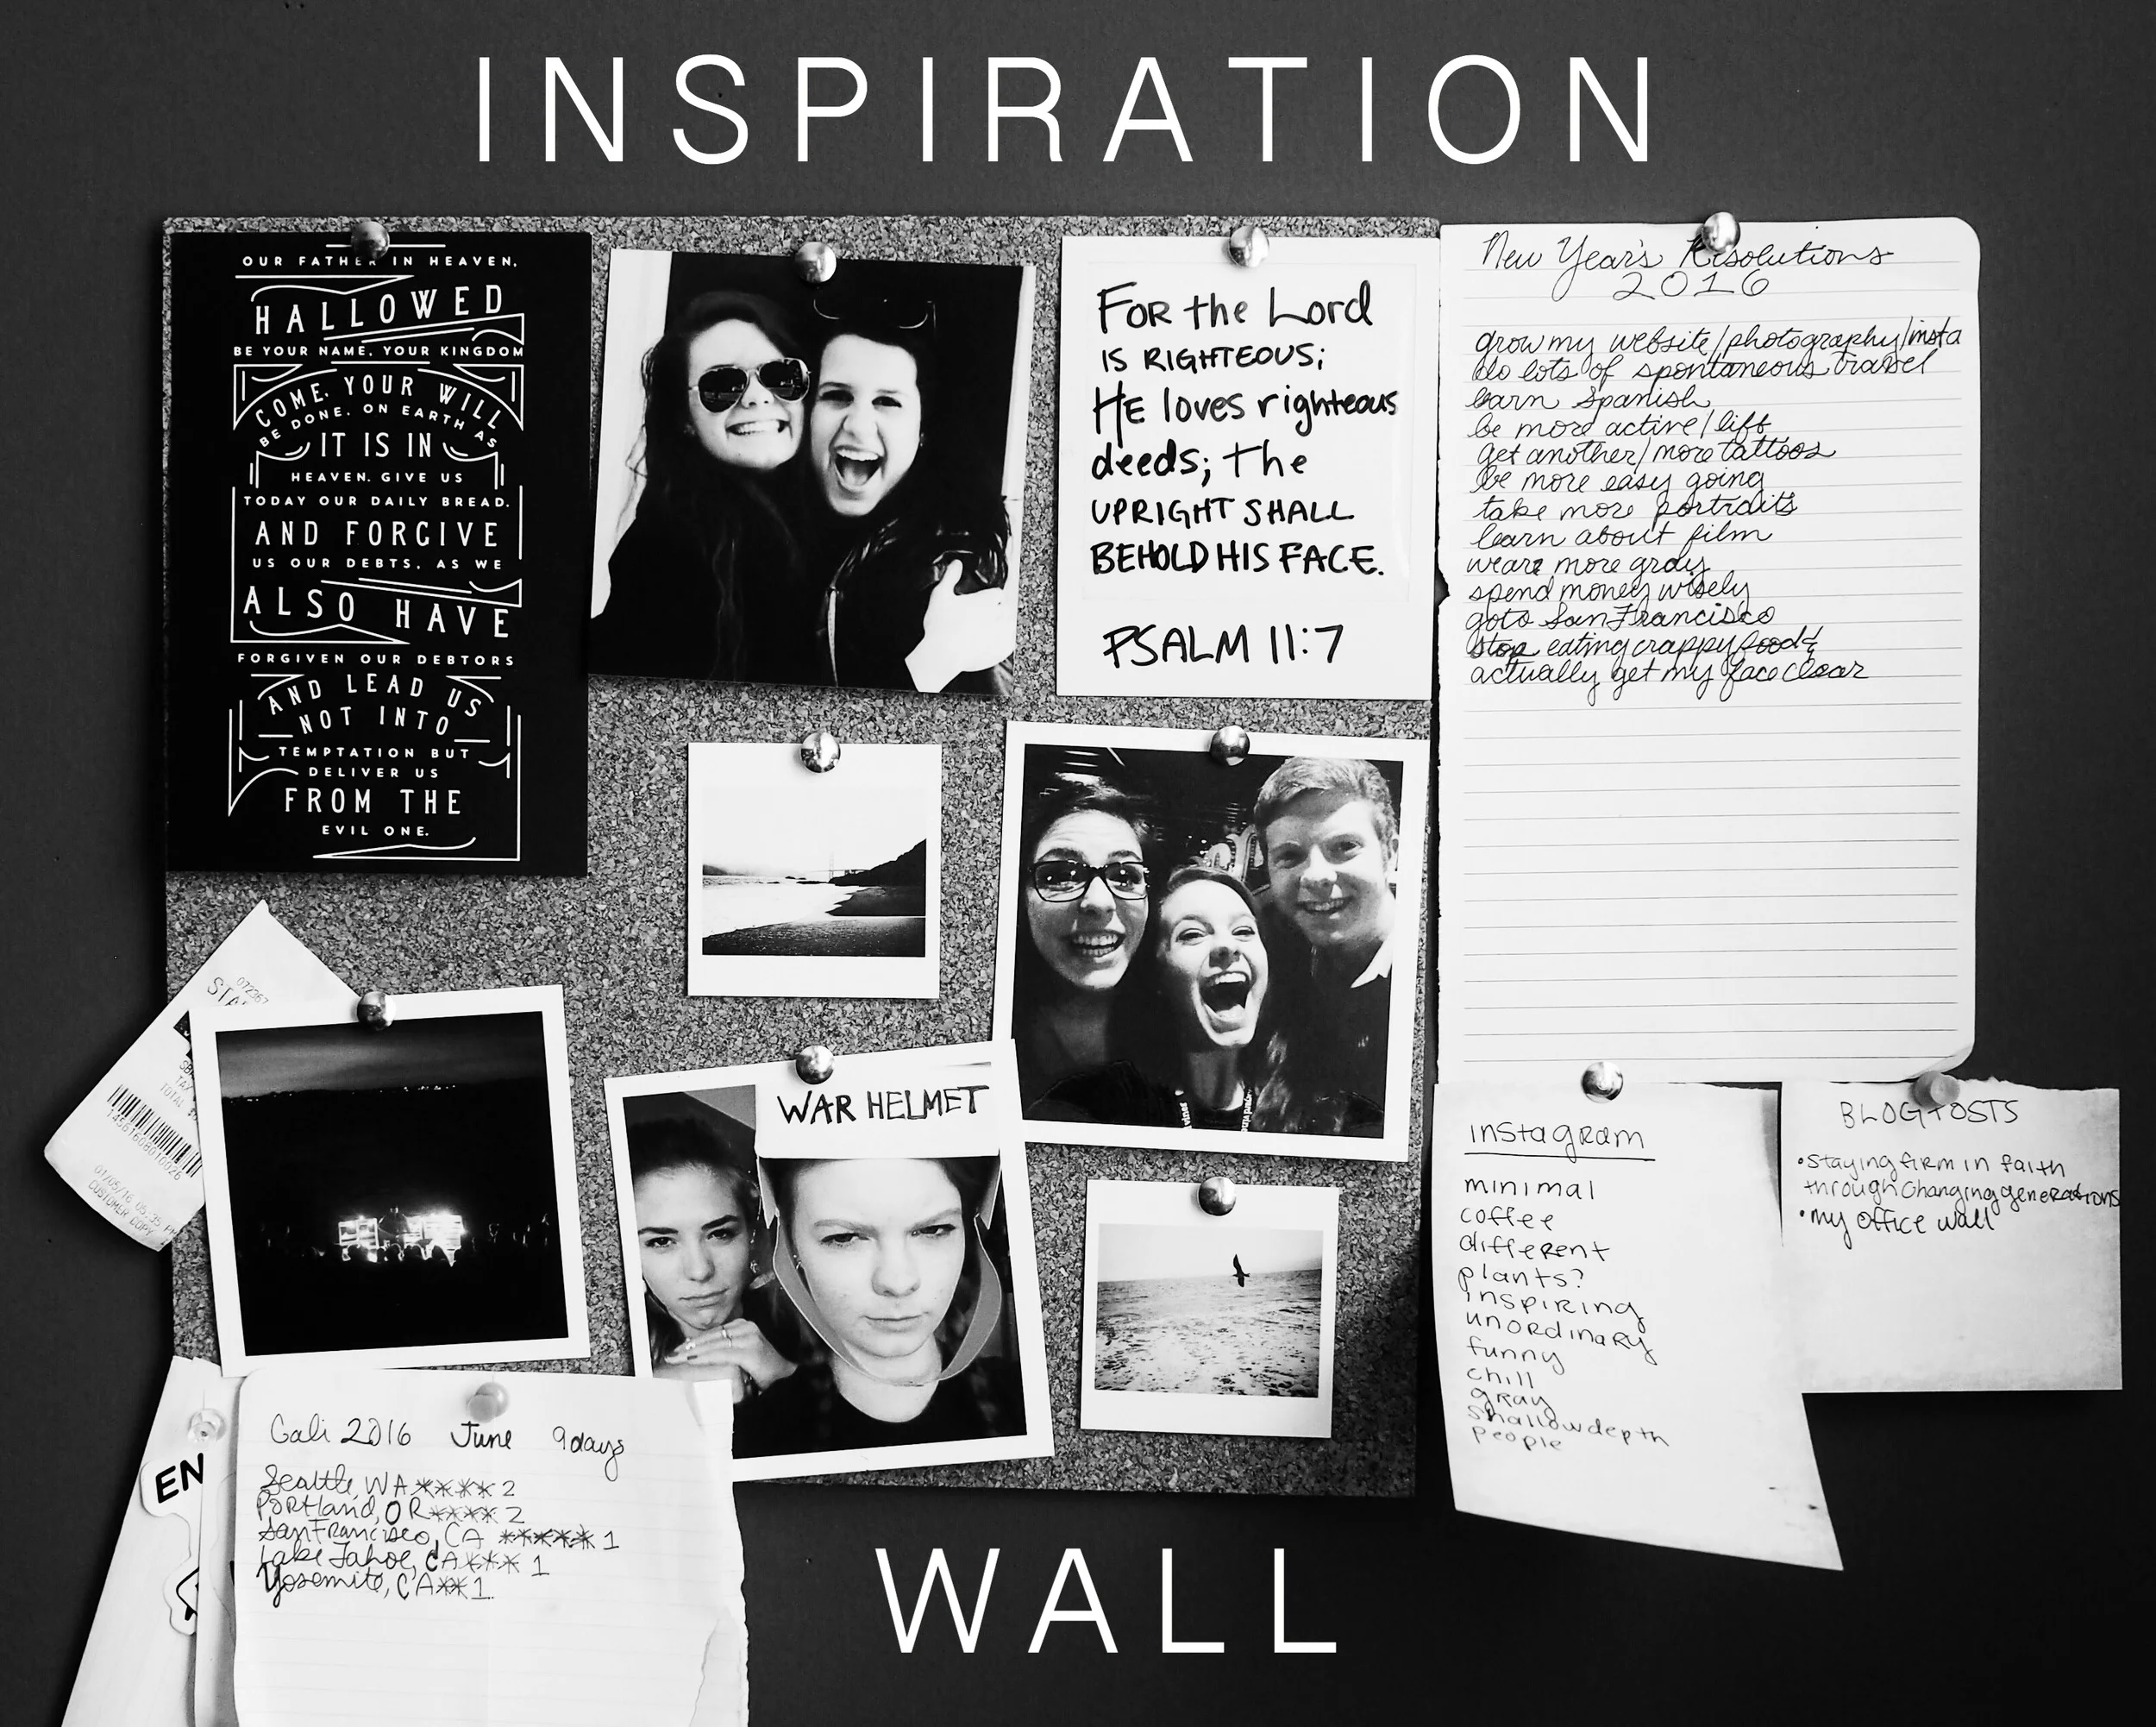 INSPIRATION
OUR FATHER IN HEAVEN,
HALLOWED
BE YOUR NAME, YOUR KINGDOM
COME, YOUR WILL
BE DONE, ON EARTH AS
IT IS IN
HEAVEN. GIVE US
TODAY OUR DAILY BREAD.
AND FORGIVE
US OUR DEBTS, AS WE
ALSO HAVE
FORGIVEN OUR DEBTORS
AND LEAD US
NOT INTO
TEMPTATION BUT
DELIVER US
FROM THE
EVIL ONE.
FOR the Lord
IS RIGHTEOUS;
HE loves righteous
deeds; the
UPRIGHT SHALL
BEHOLD HIS FACE.
PSALM 11:7
New Year's Resolutions
2016
grow my website/photography/insta
do lots of spontaneous travel
learn Spanish
be more active/lift
get another/more tattoos
be more easy going
take more portraits
learn about film
weare more gray
spend money wisely
go to San Francisco
stop eating crappy food &
actually get my face clear
072367
STA
TAX
TOTAL
01/05/16 05:35 PM
CUSTOMER COPY
WAR HELMET
instagram
minimal
coffee
different
plants?
inspiring
unordinary
funny
chill
gray
shallow depth
people
BLOG POSTS
•Staying firm in faith
through changing generations
•my office wall
EN
Cali 2016 June 9 days
Seattle, WA **** 2
Portland, OR **** 2
San Francisco, CA ***** 1
Lake Tahoe, CA *** 1
Yosemite, CA ** 1
WALL